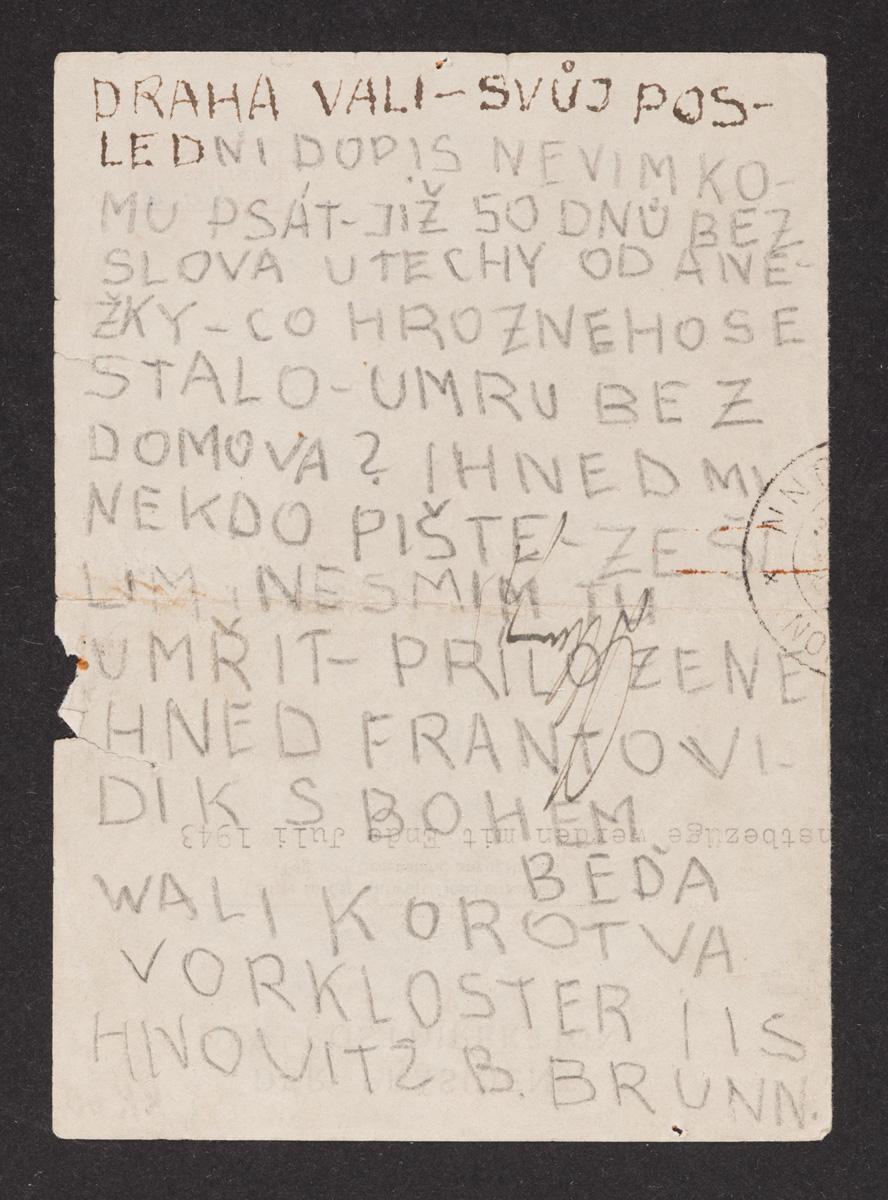 DRAHA VALI-SVŮJ POS-
LEDNI DOPIS NEVIM KO-
MU PSÁT-JIŽ 50 DNŮ BEZ
SLOVA UTECHY OD ANE-
ŽKY-CO HROZNEHO SE
STALO-UMRU BEZ
DOMOVA? IHNED MI
NEKDO PIŠTE-ZEŠÍ
LIM, NESMIM TU
UMŘIT-PRÍLOZENE
IHNED FRANTOVI-
DIK S BOHEM
nstbezüge werden mit Ende Juli 1943
BEĎA
WALI KOROTVA
VORKLOSTER 115
HNOVITZ B. BRUNN.